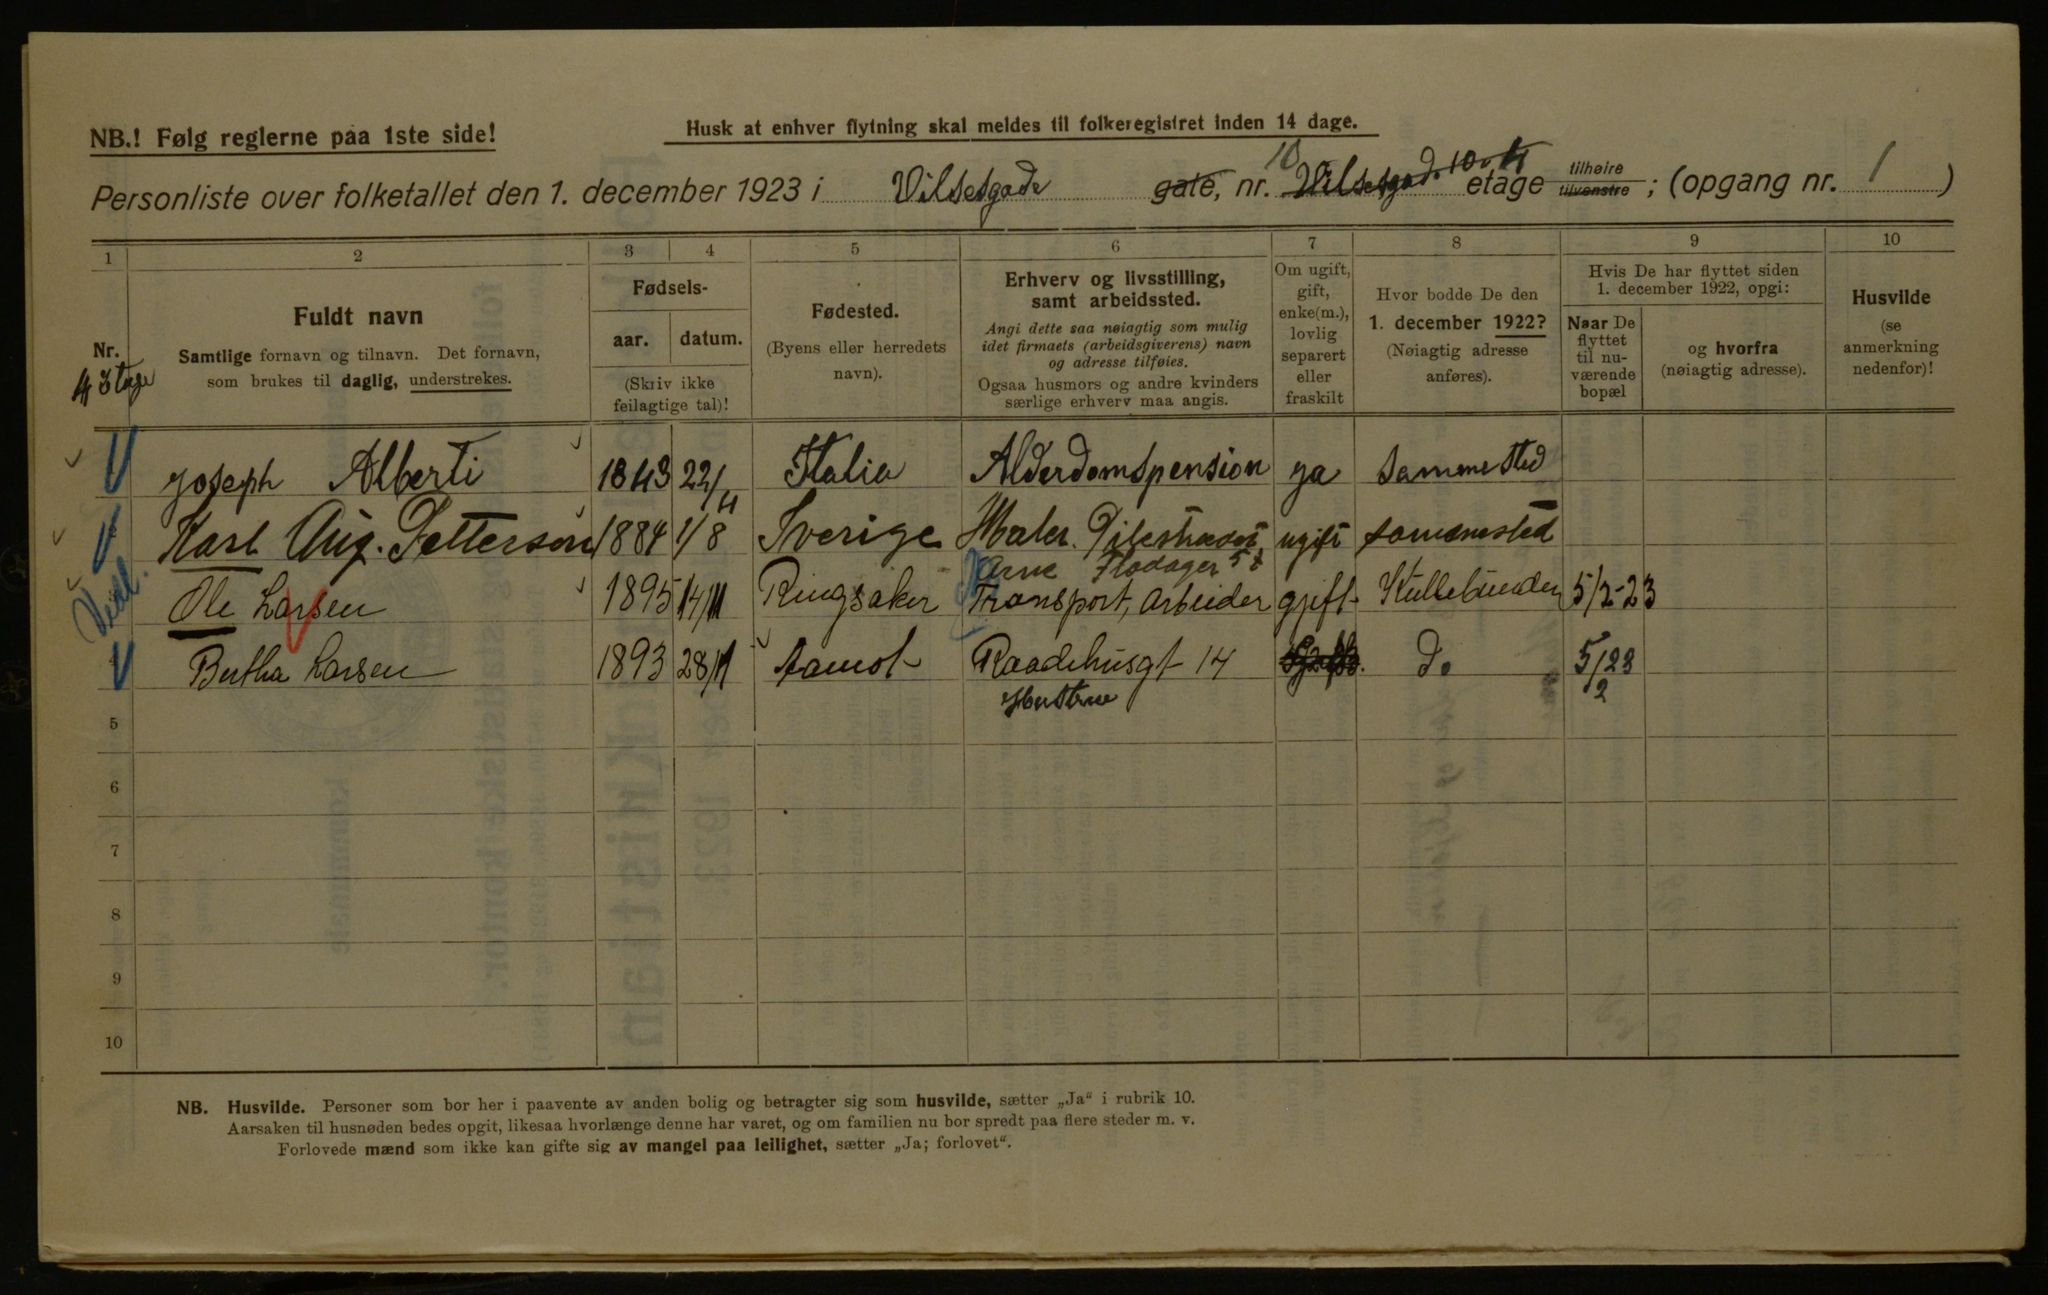 NB.! Følg reglerne paa 1ste side!
Husk at enhver flytning skal meldes til folkeregistret inden 14 dage.
Personliste over folketallet den 1. december 1923 i Vilsesgade gate, nr. 10 Vilsesgade 10. 4 etage tilhøire tilvenstre ; (opgang nr. 1 )
1 2 3 4 5 6 7 8 9 10
Nr.
4 Etage
Fuldt navn
Samtlige fornavn og tilnavn. Det fornavn,
som brukes til daglig, understrekes.
Fødsels-
aar. datum.
(Skriv ikke
feilagtige tal)!
Fødested.
(Byens eller herredets
navn).
Erhverv og livsstilling,
samt arbeidssted.
Angi dette saa nøiagtig som mulig
idet firmaets (arbeidsgiverens) navn
og adresse tilføies.
Ogsaa husmors og andre kvinders
særlige erhverv maa angis.
Om ugift,
gift,
enke(m.),
lovlig
separert
eller
fraskilt
Hvor bodde De den
1. december 1922?
(Nøiagtig adresse
anføres).
Hvis De har flyttet siden
1. december 1922, opgi:
Naar De
flyttet
til nu-
værende
bopæl
og hvorfra
(nøiagtig adresse).
Husvilde
(se
anmerkning
nedenfor)!
Joseph Alberti 1843 22/11 Italia Alderdomspension ja Sammested
Karl Aug. Petterson 1884 1/8 Sverige Maler. Pilestrædet ugift sammested
Arne Flodager
Ole Larsen 1895 14/11 Ringsaker Transport, Arbeider gjift Kullebunden 5/2-23
Bertha Larsen 1893 28/11 Aamot Raadehusgt 14 Do 5/2 23
Hustrue
5
6
7
8
9
10
NB. Husvilde. Personer som bor her i paavente av anden bolig og betragter sig som husvilde, sætter „Ja" i rubrik 10.
Aarsaken til husnøden bedes opgit, likesaa hvorlænge denne har varet, og om familien nu bor spredt paa flere steder m. v.
Forlovede mænd som ikke kan gifte sig av mangel paa leilighet, sætter „Ja; forlovet".